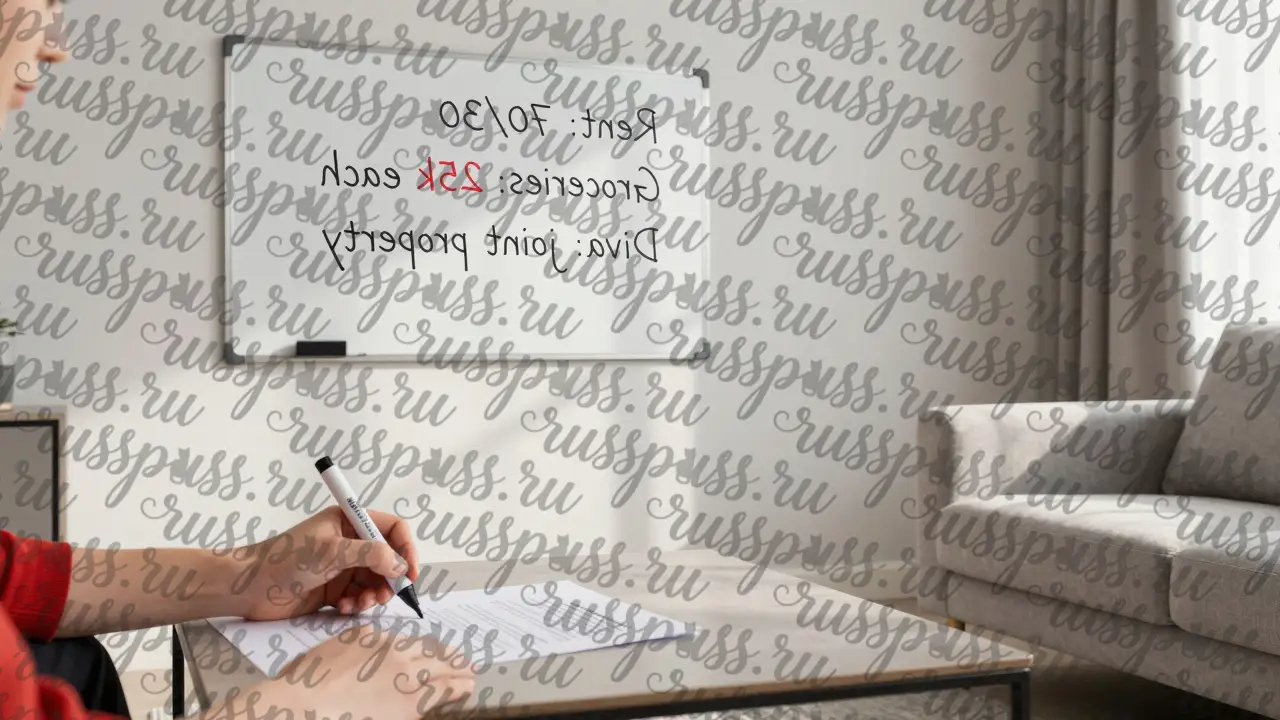 Rent: 70/30
Groceries: 25k each
Diva: joint property
russpuss.ru